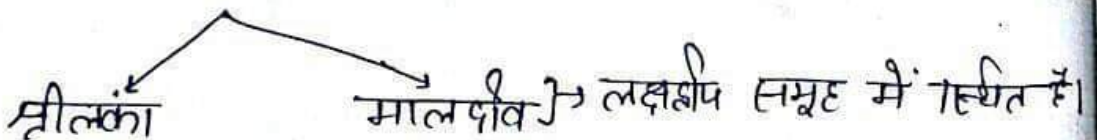 श्रीलंका मालदीव }→ लक्षद्वीप समूह में स्थित है।